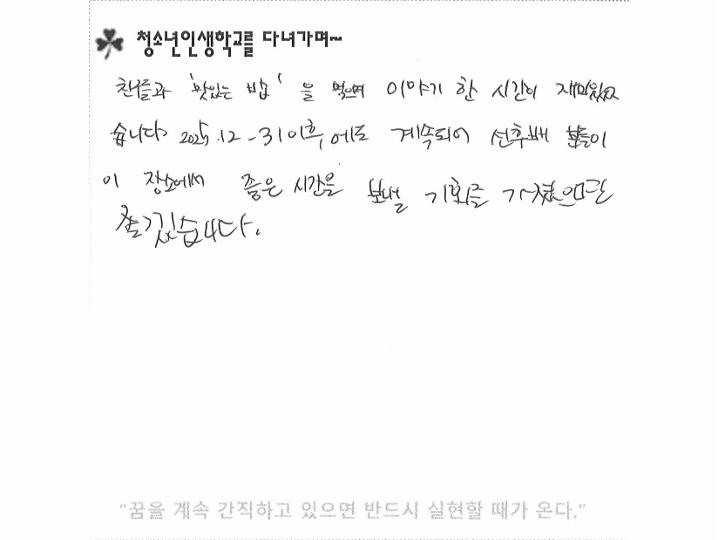 청소년인생학교를 다녀가며~
친구들과 '맛있는 밥' 을 먹으며 이야기 한 시간이 재미있었
습니다 2025.12-31이후에도 계속되어 선후배 분들이
이 장소에서 좋은 시간을 보낼 기회를 가졌으면
좋겠습니다.
"꿈을 계속 간직하고 있으면 반드시 실현할 때가 온다."